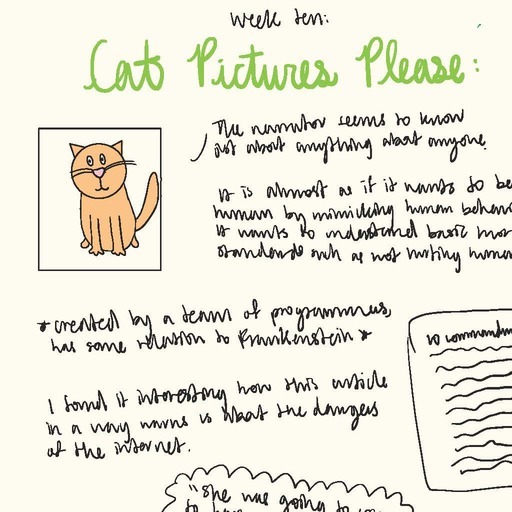 week ten:
Cat Pictures Please:
The narrator seems to know
just about anything about anyone.
it is almost as if it wants to be
human by mimicking human behavio
it wants to understand basic mor
standards such as not hurting human
*created by a team of programmers,
has some relation to Frankenstein*
10 commandm
I found it interesting how this article
in a way warns us about the dangers
of the internet.
"She was going to
to